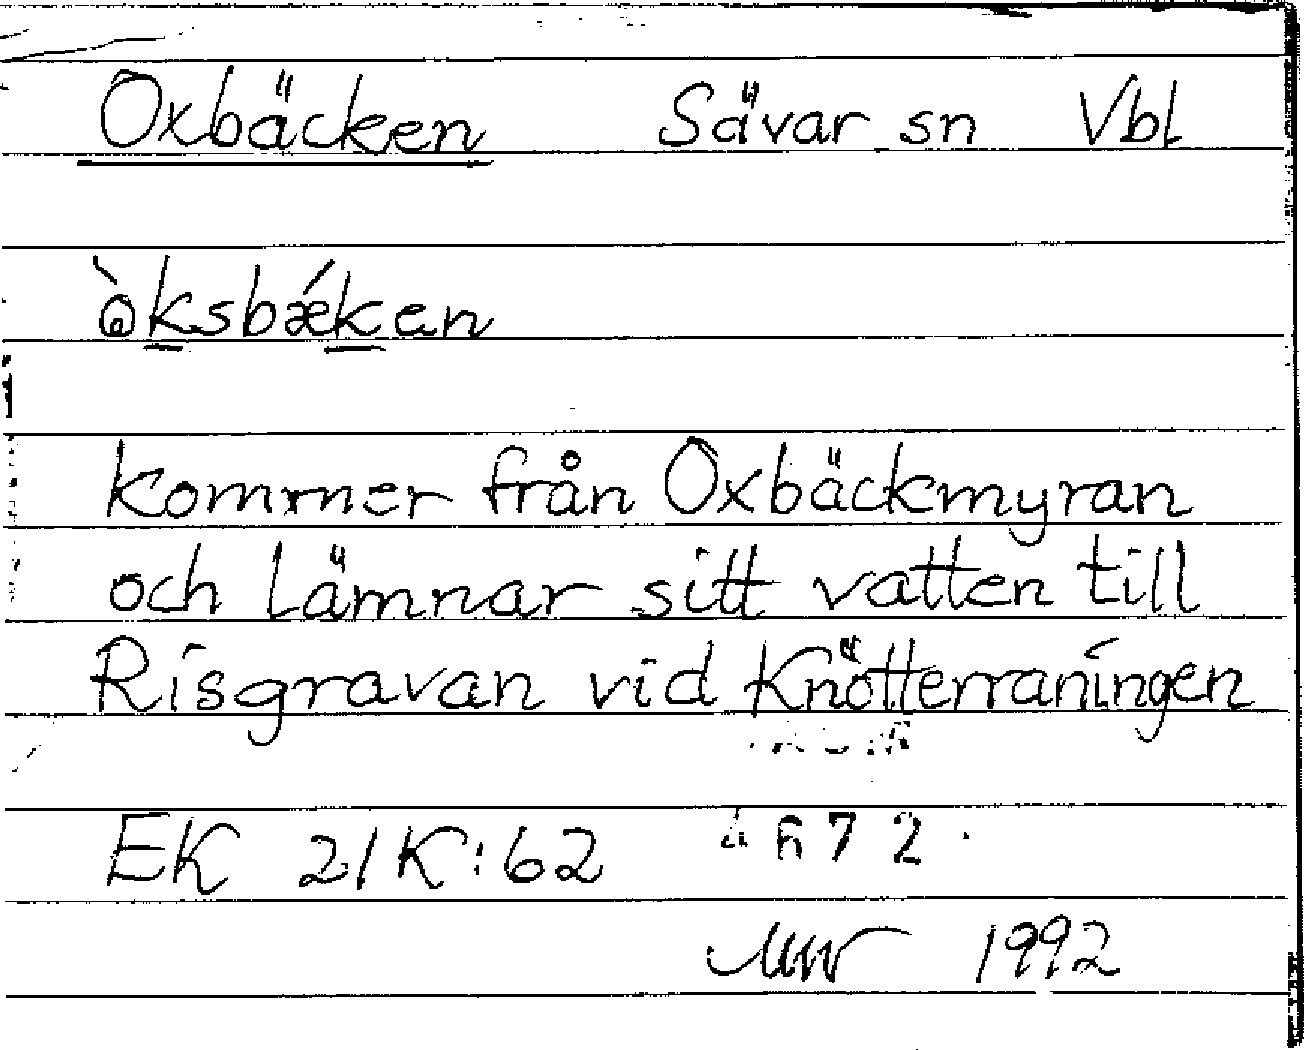 Oxbäcken Sävar sn Vbl
òksbǽken
kommer från Oxbäckmyran
och lämnar sitt vatten till
Risgravan vid Knötterraningen
EK 21K:62
1992